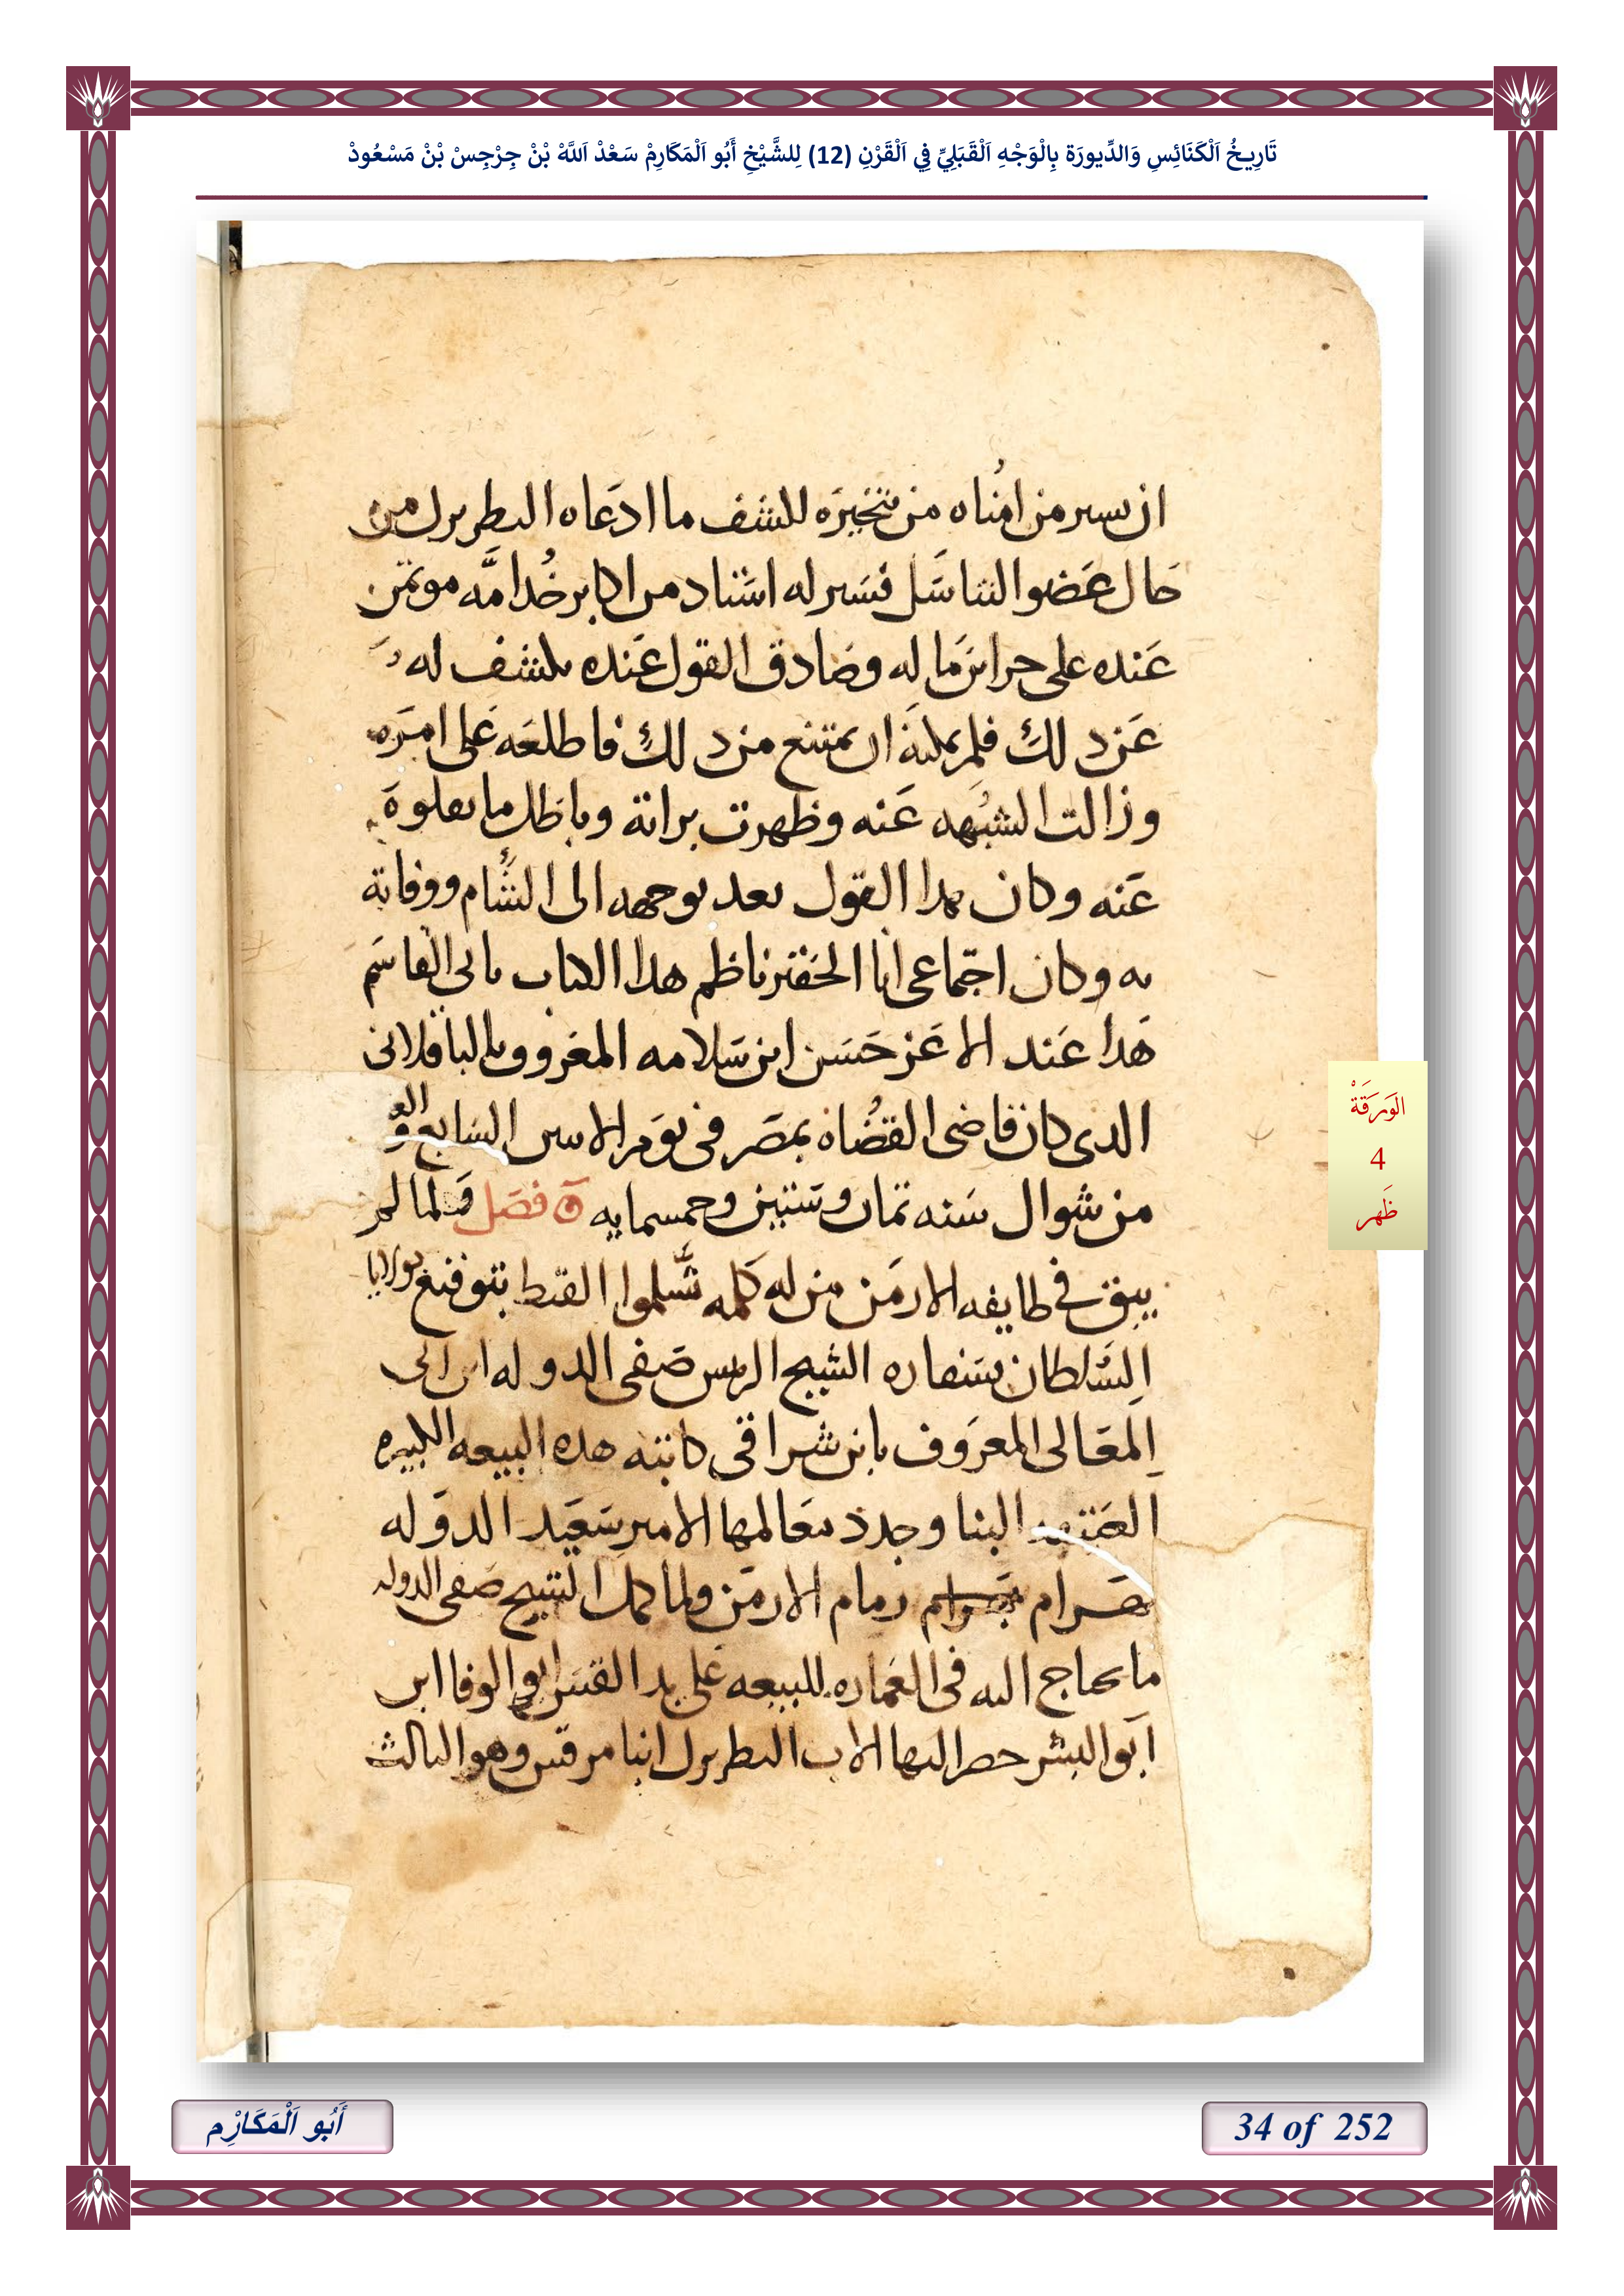 تَارِيخُ اَلْكَنَائِسِ وَالدِّيورَة بِالْوَجْهِ اَلْقَبَلِيِّ فِي اَلْقَرْنِ (12) لِلشَّيْخِ أَبُو اَلْمَكَارِمْ سَعْدْ اَللَّهْ بْنْ جِرْجِسْ بْنْ مَسْعُودْ
ان يسير من امناه من يتخيره لكشف ما ادعاه البطريرك من
حال عضو التناسل فسير له استاد من اكابر خدامه موتمن
عنده على خزاين ماله وصادق القول عنده يكشف له
عن دلك فلم يمكنه ان يمتنع من دلك فاطلعه على امره
وزالت الشبهه عنه وظهرت براته وباطل ما نقلوه
عنه وكان هدا القول بعد توجهه الى الشام ووفاته
به وكان اجتماعى انا الحقير ناظم هدا الكتاب بابى القاسم
هدا عند الاعز حسن ابن سلامه المعروف بالباقلانى
الدى كان قاضى القضاه بمصر فى يوم الاتنين السابع
من شوال سنه تمان وستين وخمسمايه فصل ولما لم
يبق فى طايفه الارمن من له كلمه تسلموا القبط بتوقيع
السلطان بسفاره الشيخ الريس صفى الدوله ابن ابى
المعالى المعروف بابن شرافى كاتبه هده البيعه الكبيره
البنا وجدد معالمها الامير سعيد الدوله
بهرام بهرام زمام الارمن ولما كمل الشيخ صفى الدوله
ما يحتاج اليه فى العماره للبيعه على يد القس ابو الوفا ابن
ابو البشر حضر اليها الاب البطريرك انبا مرقس وهو التالث
الوَرَقَةْ
4
ظَهر
أَبُو اَلْمَكَارْم
34 of 252